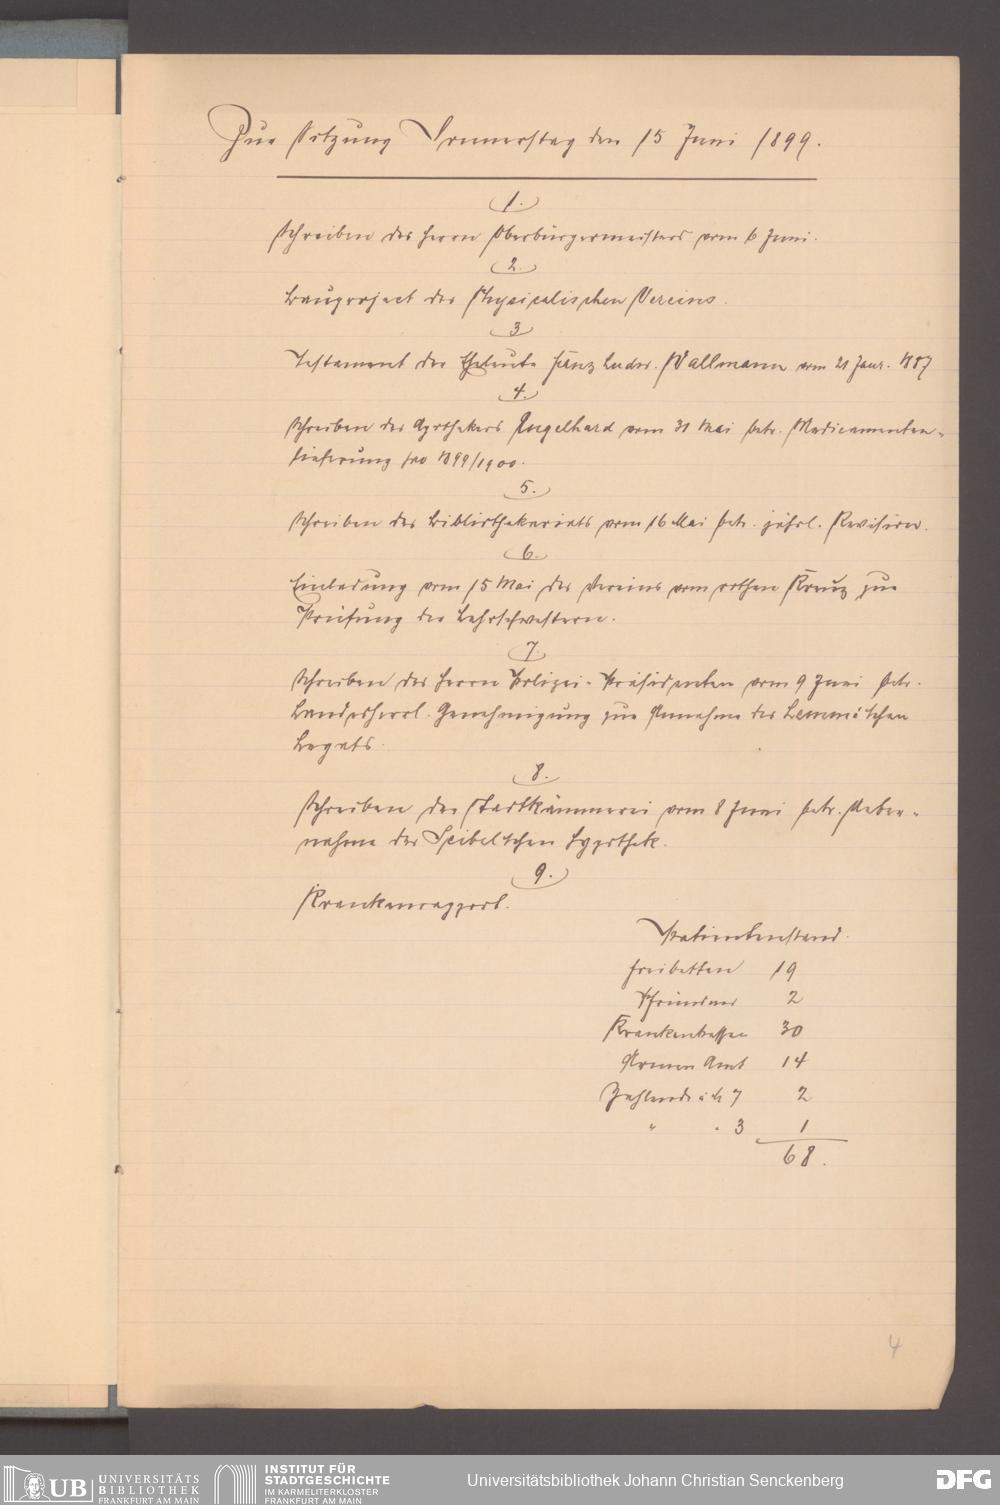 Zur Sitzung Donnerstag den 15 Juni 1899.
1.
Schreiben des Herrn Oberbürgermeisters vom 6 Juni.
2.
Bauproject des Physicalischen Vereins.
3
Testament der Eheleute Franz Wallmann vom 21 Janr. 1887
4.
Schreiben des Apothekers Engelhard vom 31 Mai betr. Medicamenten-
lieferung pro 1899/1900.
5.
Schreiben des Bibliothekariats vom 16 Mai betr. jährl. Revision.
6.
Einladung vom 15 Mai des Vereins vom rothen Kreuz zur
Prüfung der Lehrschwestern.
7.
Schreiben des Herrn Polizei-Präsidenten vom 9 Juni betr.
Landesherrl. Genehmigung zur Annahme des Lemmé'schen
Legats.
8.
Schreiben der Stadtkämmerei vom 8 Juni betr. Ueber-
nahme der Hypothek.
9.
Krankenrapport.
Patientenstand.
Freibetten 19
Pfründner 2
Krankenkassen 30
Armen Amt 14
Zahlende à M 7 2
" " 3 1
68.
4
UB UNIVERSITÄTS
BIBLIOTHEK
FRANKFURT AM MAIN
INSTITUT FÜR
STADTGESCHICHTE
IM KARMELITERKLOSTER
FRANKFURT AM MAIN
Universitätsbibliothek Johann Christian Senckenberg
DFG